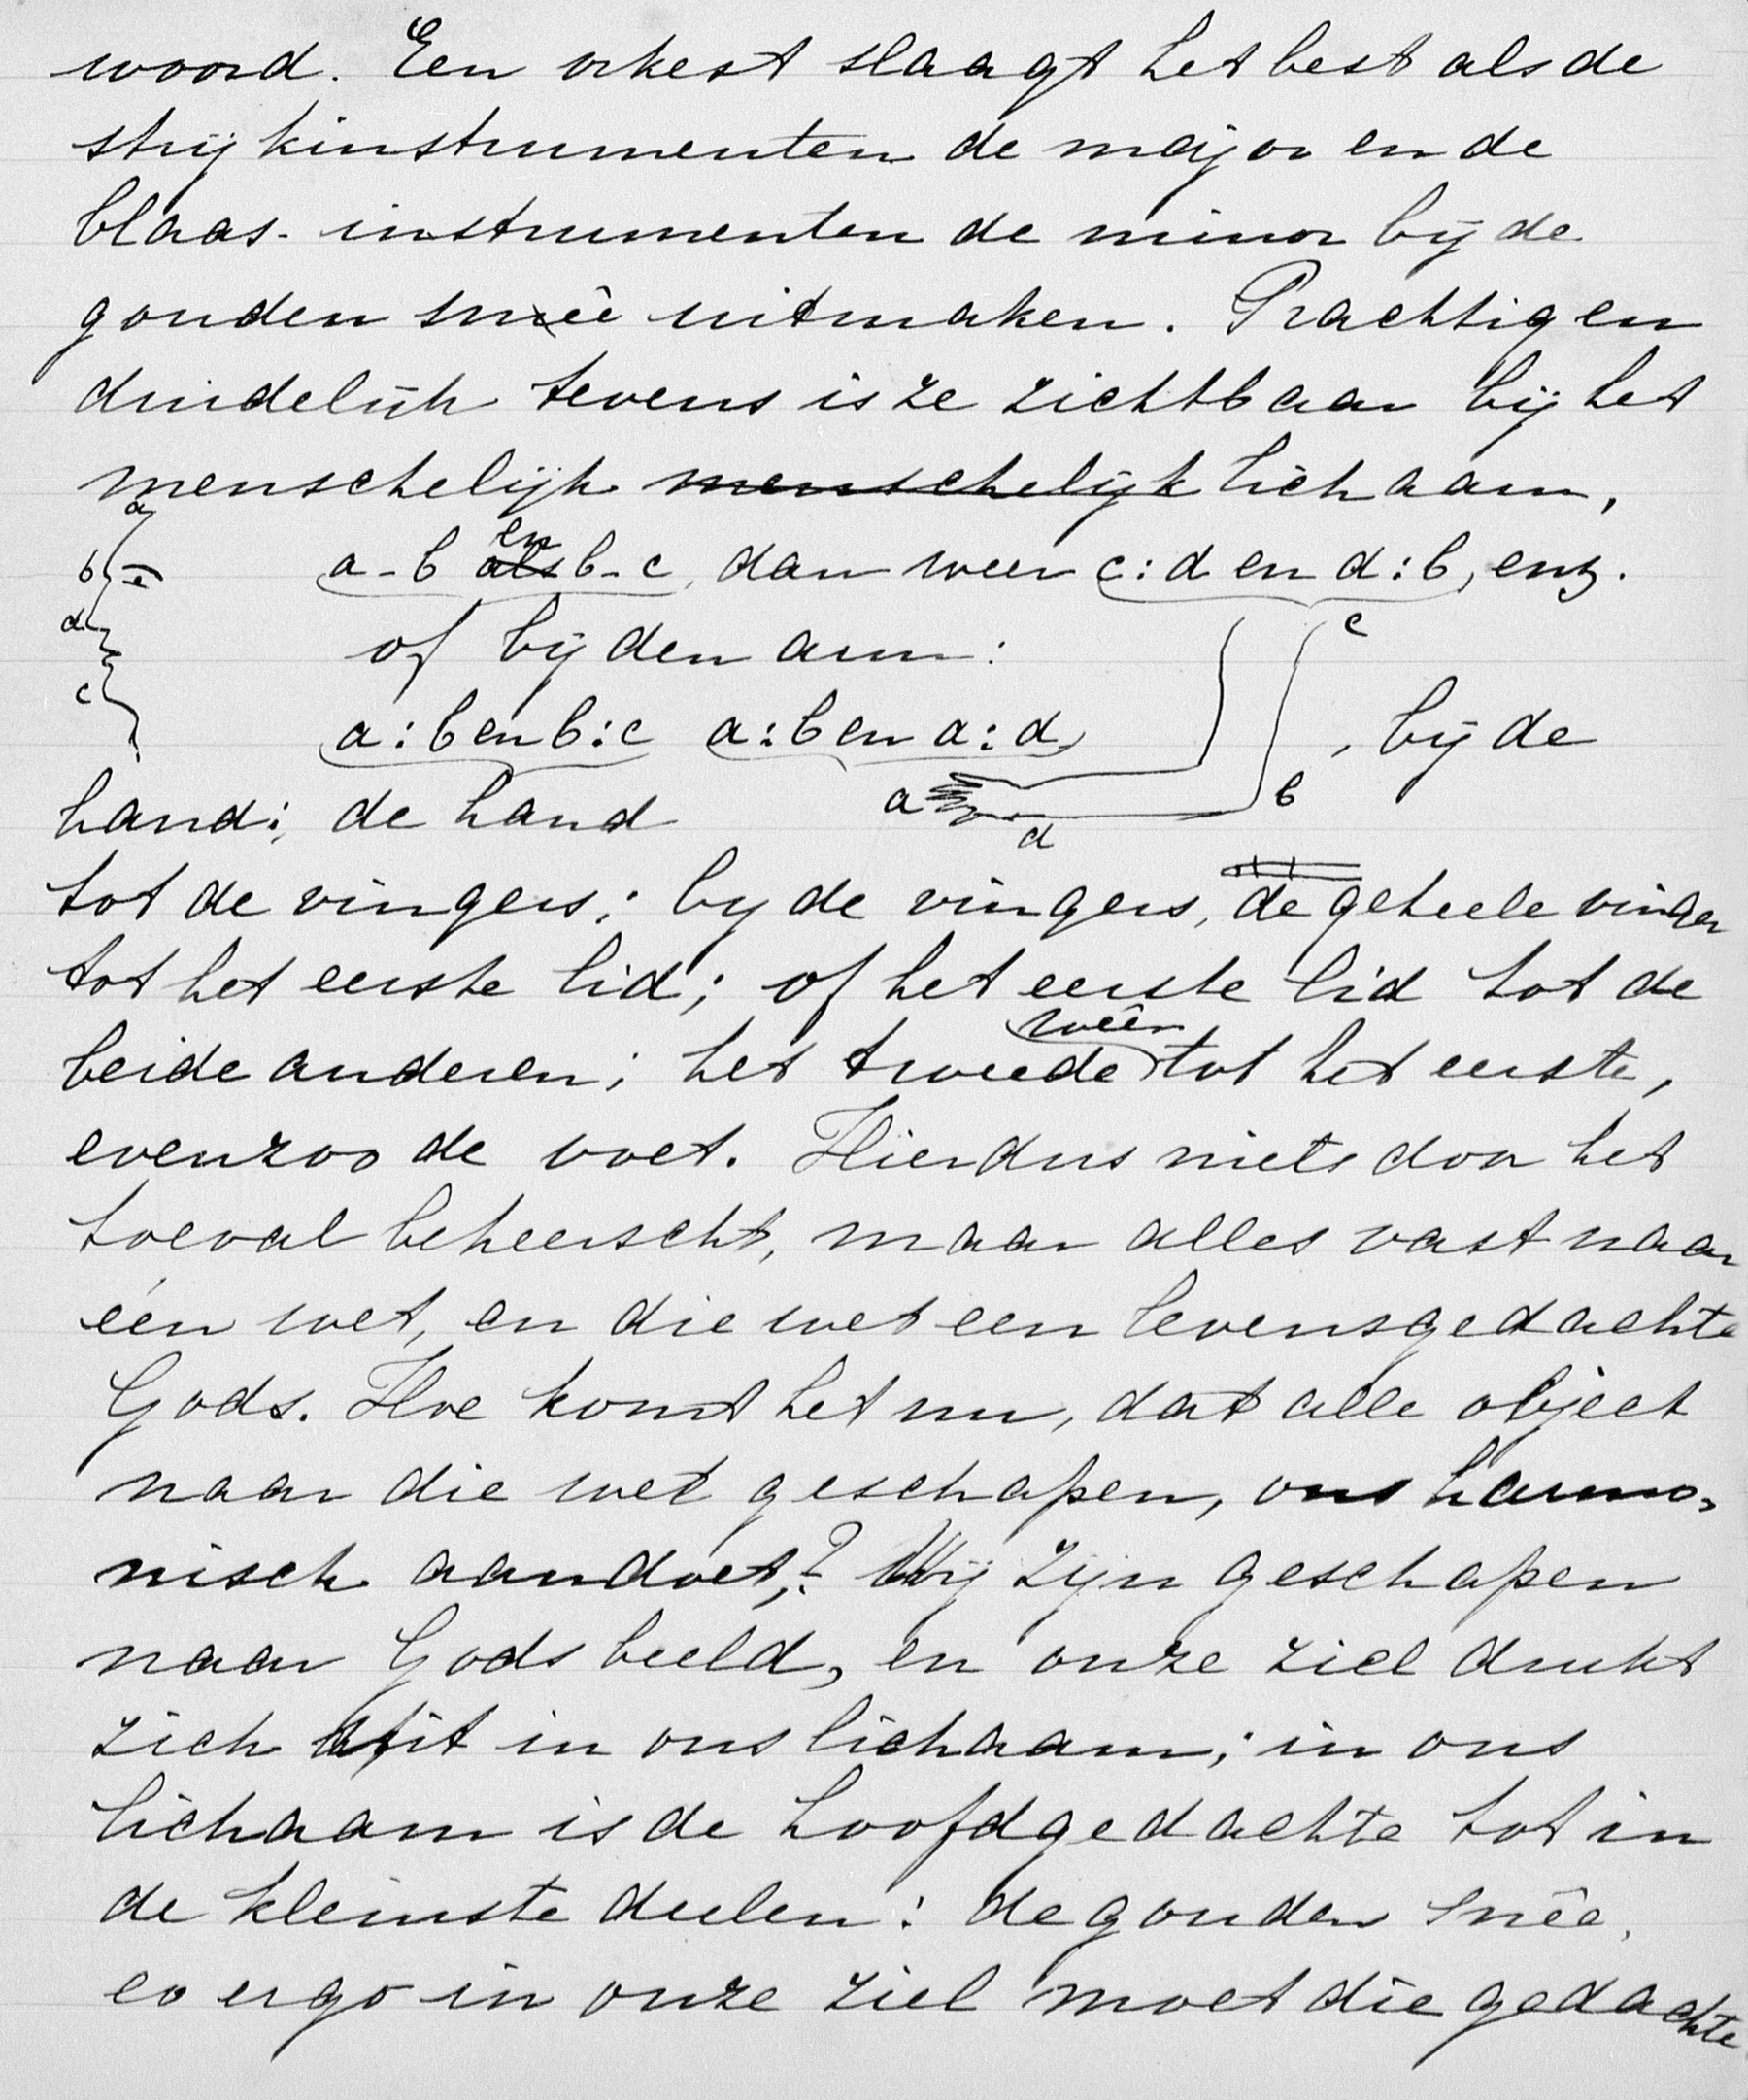 woord. Een orkest slaagt het best als de
strijkinstrumenten de major en de
blaas-instrumenten de minor bij de
gouden sneê uitmaken. Prachtig en
duidelijk tevens is ze zichtbaar bij het
menschelijk menschelijk lichaam,
a
en
b e a-b als b-c, dan weer c:d en d:b, enz.
d of bij den arm: c
c
a:b en b:c a:b en a:d, bij de
hand: de hand a d b
tot de vingers; by de vingers, de geheele vinger
tot het eerste lid; of het eerste lid tot de
weêr
beide anderen; het tweede tot het eerste,
evenzoo de voet. Hier dus niets door het
toeval beheerscht, maar alles vast naar
één wet, en die wet een levensgedachte
Gods. Hoe komt het nu, dat alle object
naar die wet geschapen, ons harmo-
nisch aandoet,? Wij zijn geschapen
naar Gods beeld, en onze ziel drukt
zich uit in ons lichaam; in ons
lichaam is de hoofdgedachte tot in
de kleinste deelen: de gouden sneê,
ergo in onze ziel moet die gedachte